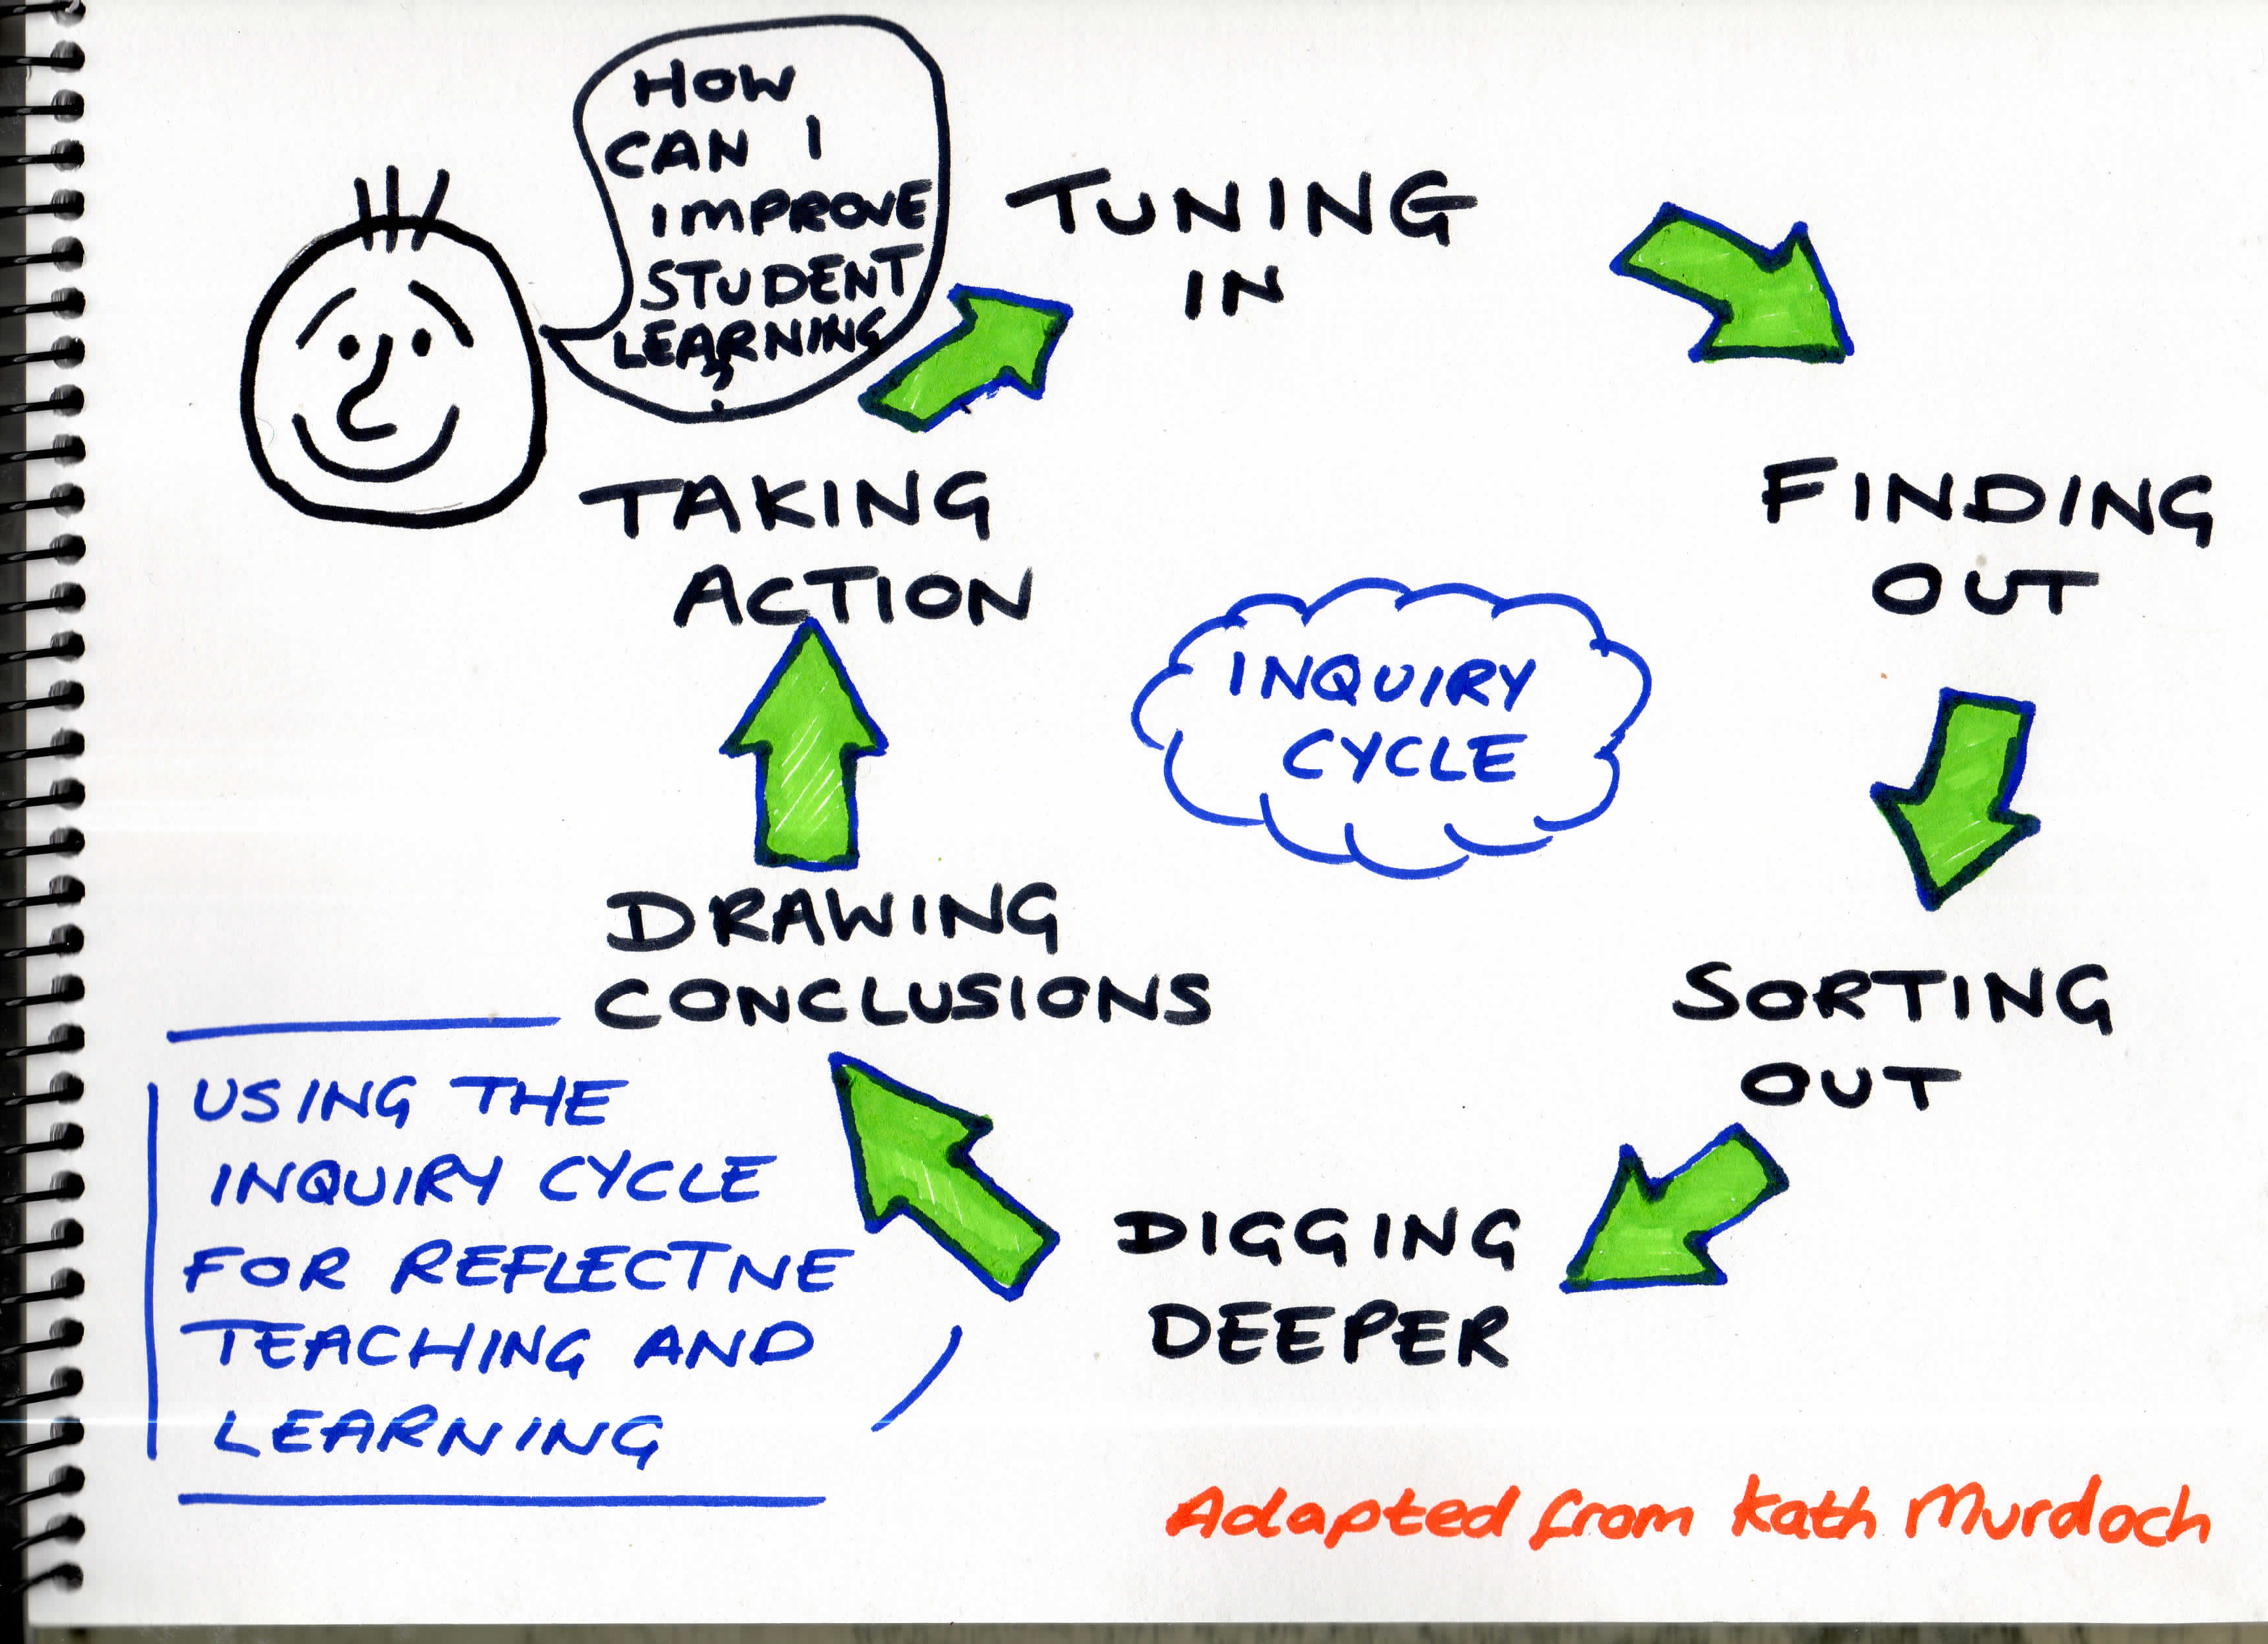 HOW
CAN I
IMPROVE
STUDENT
LEARNING
?
TUNING
IN
FINDING
OUT
SORTING
OUT
DIGGING
DEEPER
DRAWING
CONCLUSIONS
TAKING
ACTION
INQUIRY
CYCLE
USING THE
INQUIRY CYCLE
FOR REFLECTIVE
TEACHING AND
LEARNING
Adapted from Kath Murdoch